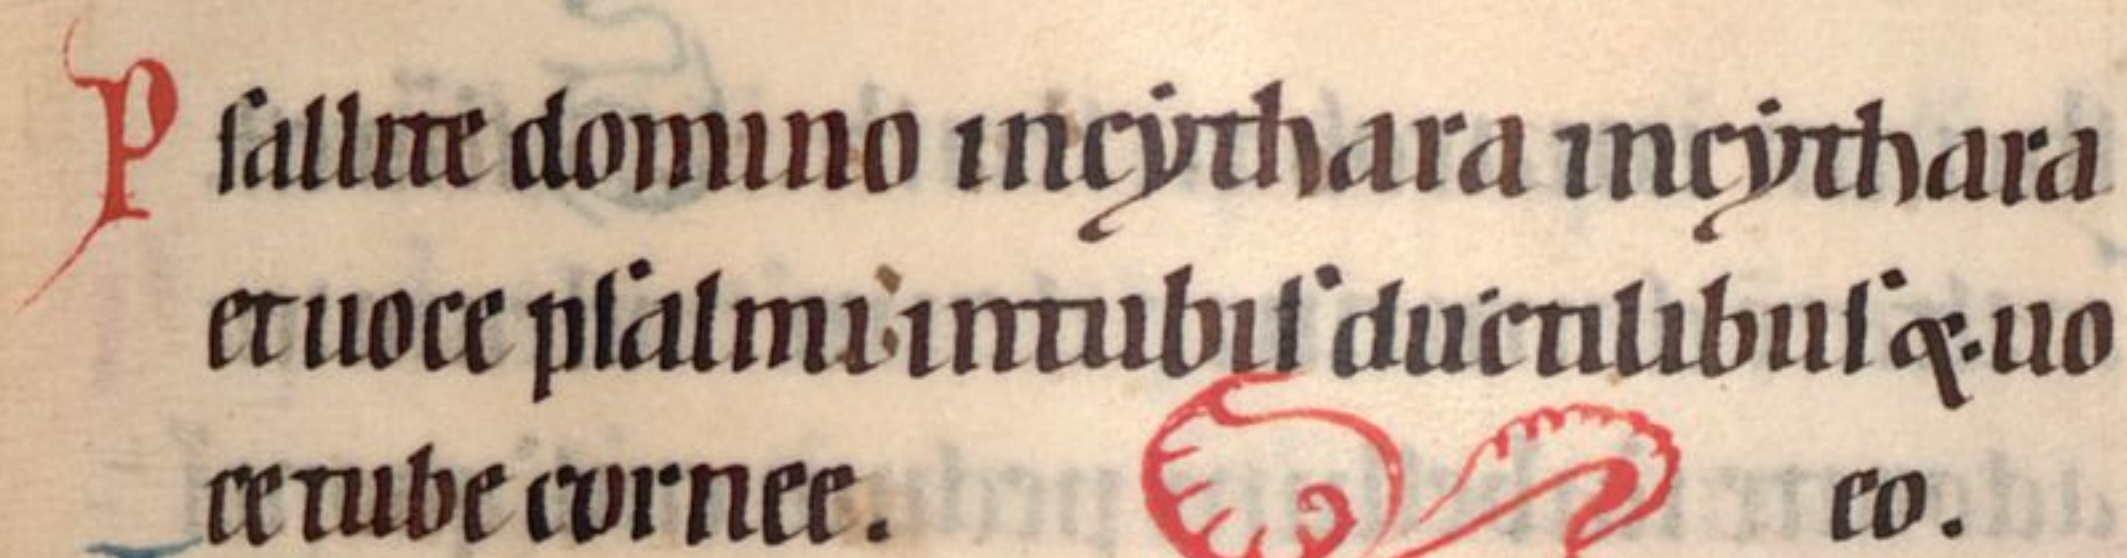 Psallite domino incythara incythara
et uoce psalmi intubis ductilibus & uo
ce tube cornee.
eo.